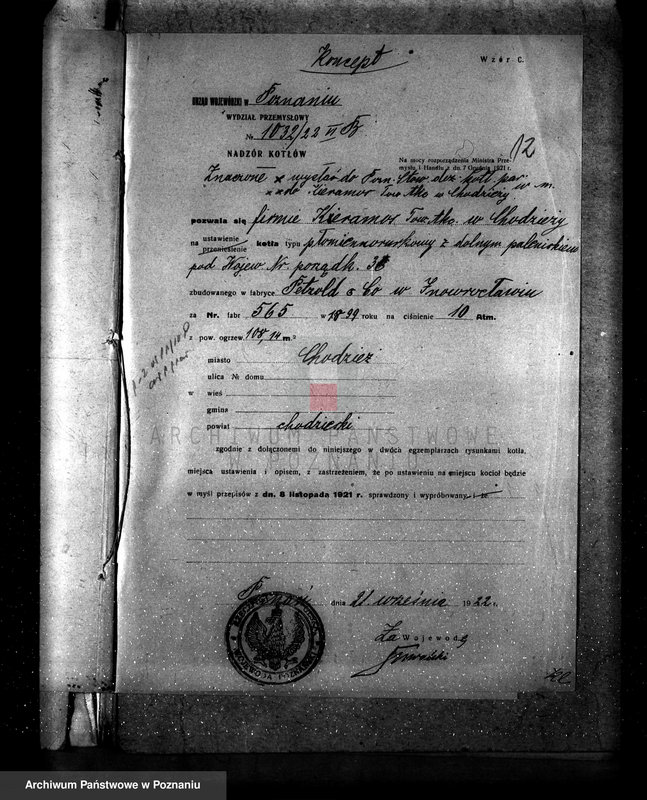 Koncept
Wzór C.
URZĄD WOJEWÓDZKI w Poznaniu
WYDZIAŁ PRZEMYSŁOWY
№ 1032/22 VI
NADZÓR KOTŁÓW
12
Na mocy rozporządzenia Ministra Prze-
mysłu i Handlu z dn. 7 Grudnia 1921 r.
Znaczone x wysłać do Pozn. Stow. doz. kotł. par.
xx do Keramos Tow. Akc. w Chodzieży w m.
pozwala się firmie Kieramos Tow. Akc. w Chodzieży
na ustawienie
przeniesienie kotła typu płomiennorurkowy z dolnym paleniskiem
pod Wojew. Nr. porządk.
zbudowanego w fabryce Petzold & Co w Inowrocławiu
za Nr. fabr 565 w 1899 roku na ciśnienie 10 Atm.
z pow. ogrzew. 108,14 m.²
miasto Chodzież
ulica № domu
w wieś
gmina
powiat chodzieski
ARCHIWUM PAŃSTWOWE
zgodnie z dołączonemi do niniejszego w dwóch egzemplarzach rysunkami kotła,
miejsca ustawienia i opisem, z zastrzeżeniem, że po ustawieniu na miejscu kocioł będzie
w myśl przepisów z dn. 8 listopada 1921 r. sprawdzony i wypróbowany i że
dnia 21 września 1922 r.
Za Wojewodę
Archiwum Państwowe w Poznaniu